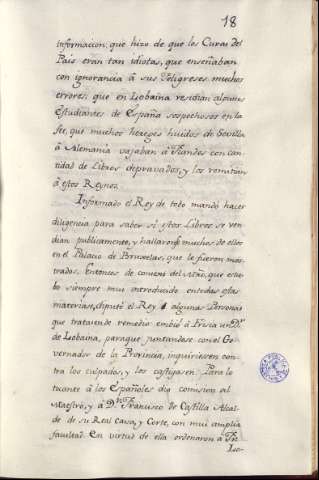 18
informacion, que hizo de que los Curas del
Pais eran tan idiotas, que enseñaban
con ignorancia á sus feligreses muchos
errores; que en Lobaina residian algunos
Estudiantes de España sospechosos en la
feé, que muchos hereges huidos de Sevilla
á Alemania vajaban á Flandes con can-
tidad de Libros depravados, y los remitian
á estos Reynos.
Informado el Rey de todo mandó hacer
diligencia para saber si estos Libros se ven
dian publicamente, y hallaronse muchos de ellos
en el Palacio de Bruxelas, que le fueron mos-
trados. Entonces de consejo del Mro, que estu
bo siempre mui introducido en todas estas
materias, diputó el Rey algunas Personas
que tratasen de remedio embió á Frisia un
de Lobaina, paraque juntandose con el Go-
vernador de la Provincia, inquiriesen con-
tra los culpados, y los castigasen. Para lo
tocante á los Españoles dio comision al
Maestro, y á Dn Francisco de Castilla Alcal-
de de su Real casa, y Corte, con mui amplia
facultad. En virtud de ella ordenaron á Fr
Lo-